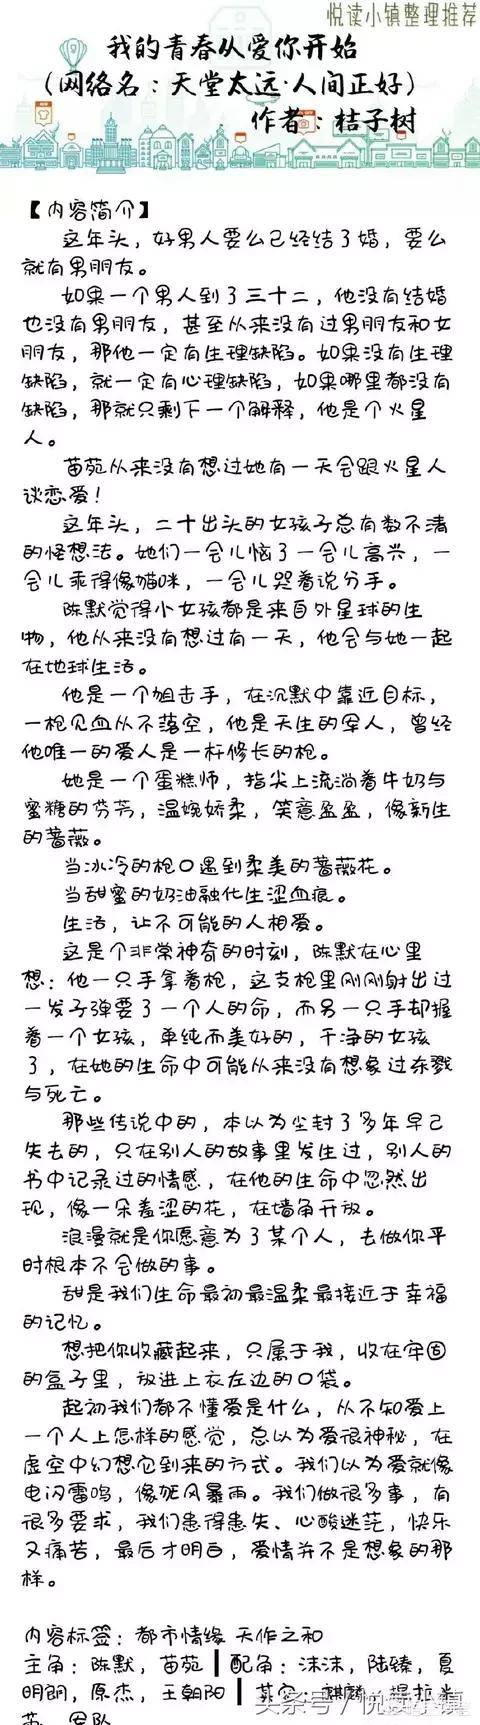 悦读小镇整理推荐
我的青春从爱你开始
（网络名：天堂太远·人间正好）
作者：桔子树
【内容简介】
这年头，好男人要么已经结了婚，要么
就有男朋友。
如果一个男人到了三十二，他没有结婚
也没有男朋友，甚至从来没有过男朋友和女
朋友，那他一定有生理缺陷。如果没有生理
缺陷，就一定有心理缺陷，如果哪里都没有
缺陷，那就只剩下一个解释，他是个火星
人。
苗苑从来没有想过她有一天会跟火星人
谈恋爱！
这年头，二十出头的女孩子总有数不清
的怪想法。她们一会儿恼了一会儿高兴，一
会儿乖得像猫咪，一会儿哭着说分手。
陈默觉得小女孩都是来自外星球的生
物，他从来没有想过有一天，他会与她一起
在地球生活。
他是一个狙击手，在沉默中靠近目标，
一枪见血从不落空，他是天生的军人，曾经
他唯一的爱人是一杆修长的枪。
她是一个蛋糕师，指尖上流淌着牛奶与
蜜糖的芬芳，温婉娇柔，笑意盈盈，像新生
的蔷薇。
当冰冷的枪口遇到柔美的蔷薇花。
当甜蜜的奶油融化生涩血痕。
生活，让不可能的人相爱。
这是个非常神奇的时刻，陈默在心里
想：他一只手拿着枪，这支枪里刚刚射出过
一发子弹要了一个人的命，而另一只手却握
着一个女孩，单纯而美好的，干净的女孩
了，在她的生命中可能从来没有想象过杀戮
与死亡。
那些传说中的，本以为尘封了多年早已
失去的，只在别人的故事里发生过，别人的
书中记录过的情感，在他的生命中忽然出
现，像一朵羞涩的花，在墙角开放。
浪漫就是你愿意为了某个人，去做你平
时根本不会做的事。
甜是我们生命最初最温柔最接近于幸福
的记忆。
想把你收藏起来，只属于我，收在牢固
的盒子里，放进上衣左边的口袋。
起初我们都不懂爱是什么，从不知爱上
一个人上怎样的感觉，总以为爱很神秘，在
虚空中幻想它到来的方式。我们以为爱就像
电闪雷鸣，像狂风暴雨。我们做很多事，有
很多要求，我们患得患失、心酸迷茫，快乐
又痛苦，最后才明白，爱情并不是想象的那
样。
内容标签：都市情缘 天作之和
主角：陈默，苗苑┃配角：沫沫，陆臻，夏
明朗，原杰，王朝阳┃其它：麒麟，提拉米
苏，军队
头条号／悦读小镇